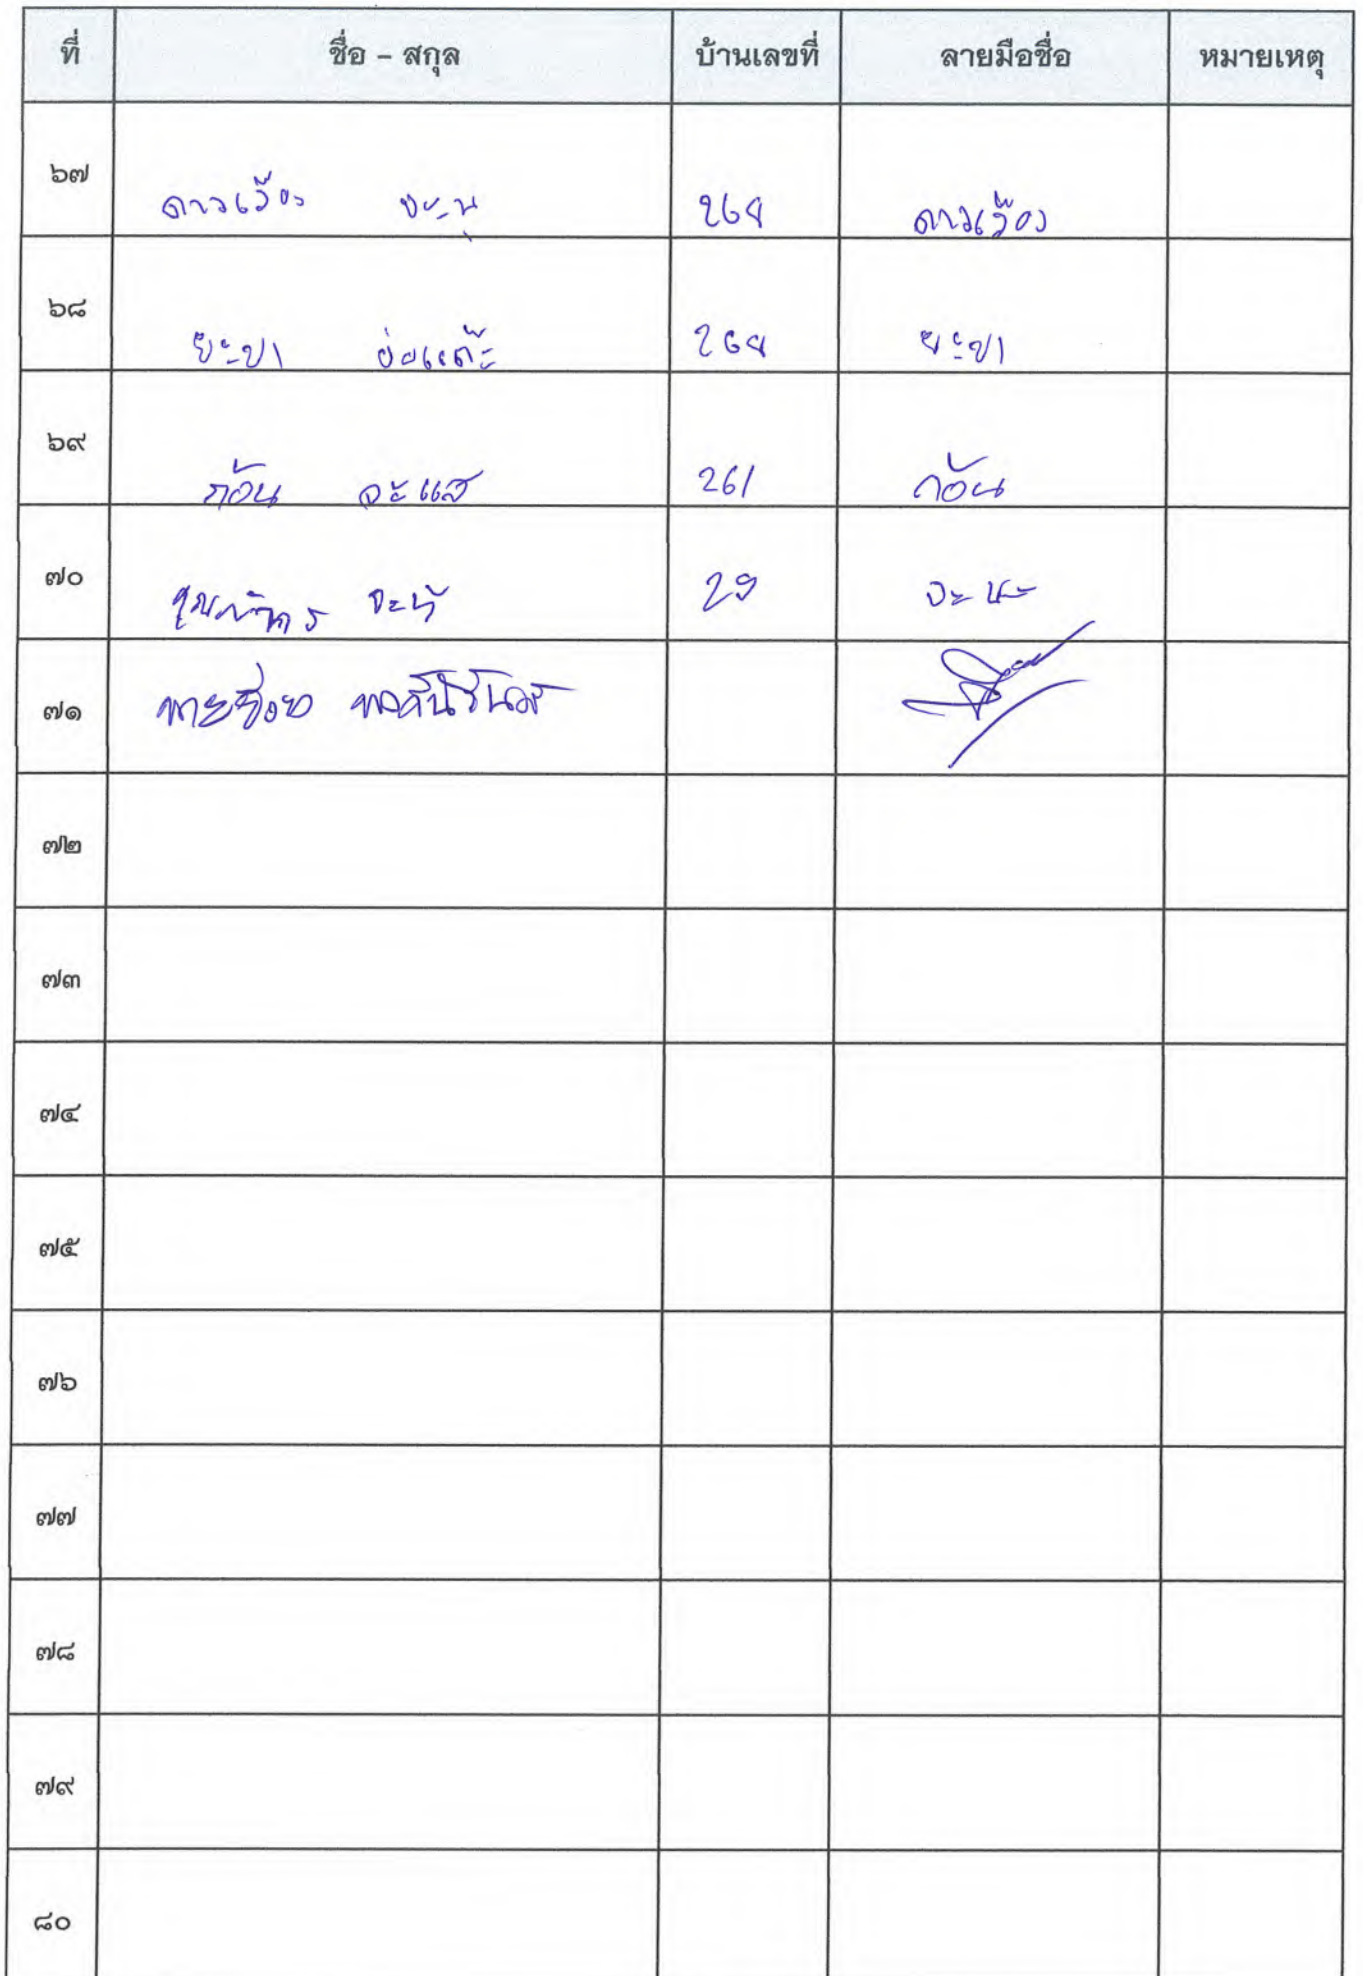 ที่ ชื่อ - สกุล บ้านเลขที่ ลายมือชื่อ หมายเหตุ
๖๗ ดาวเรือง จะนุ 264 ดาวเรือง
๖๘ ยะปา ย่อแต๊ะ 264 ยะปา
๖๙ ก้อน จะแส 261 ก้อน
๗๐ จะ 29 จะนะ
๗๑
๗๒
๗๓
๗๔
๗๕
๗๖
๗๗
๗๘
๗๙
๘๐